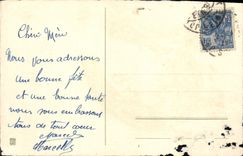 Chère Mère
Nous vous adressons
une bonne fête
et une bonne santé
nous vous embrassons
tous de tout cœur
Marcel